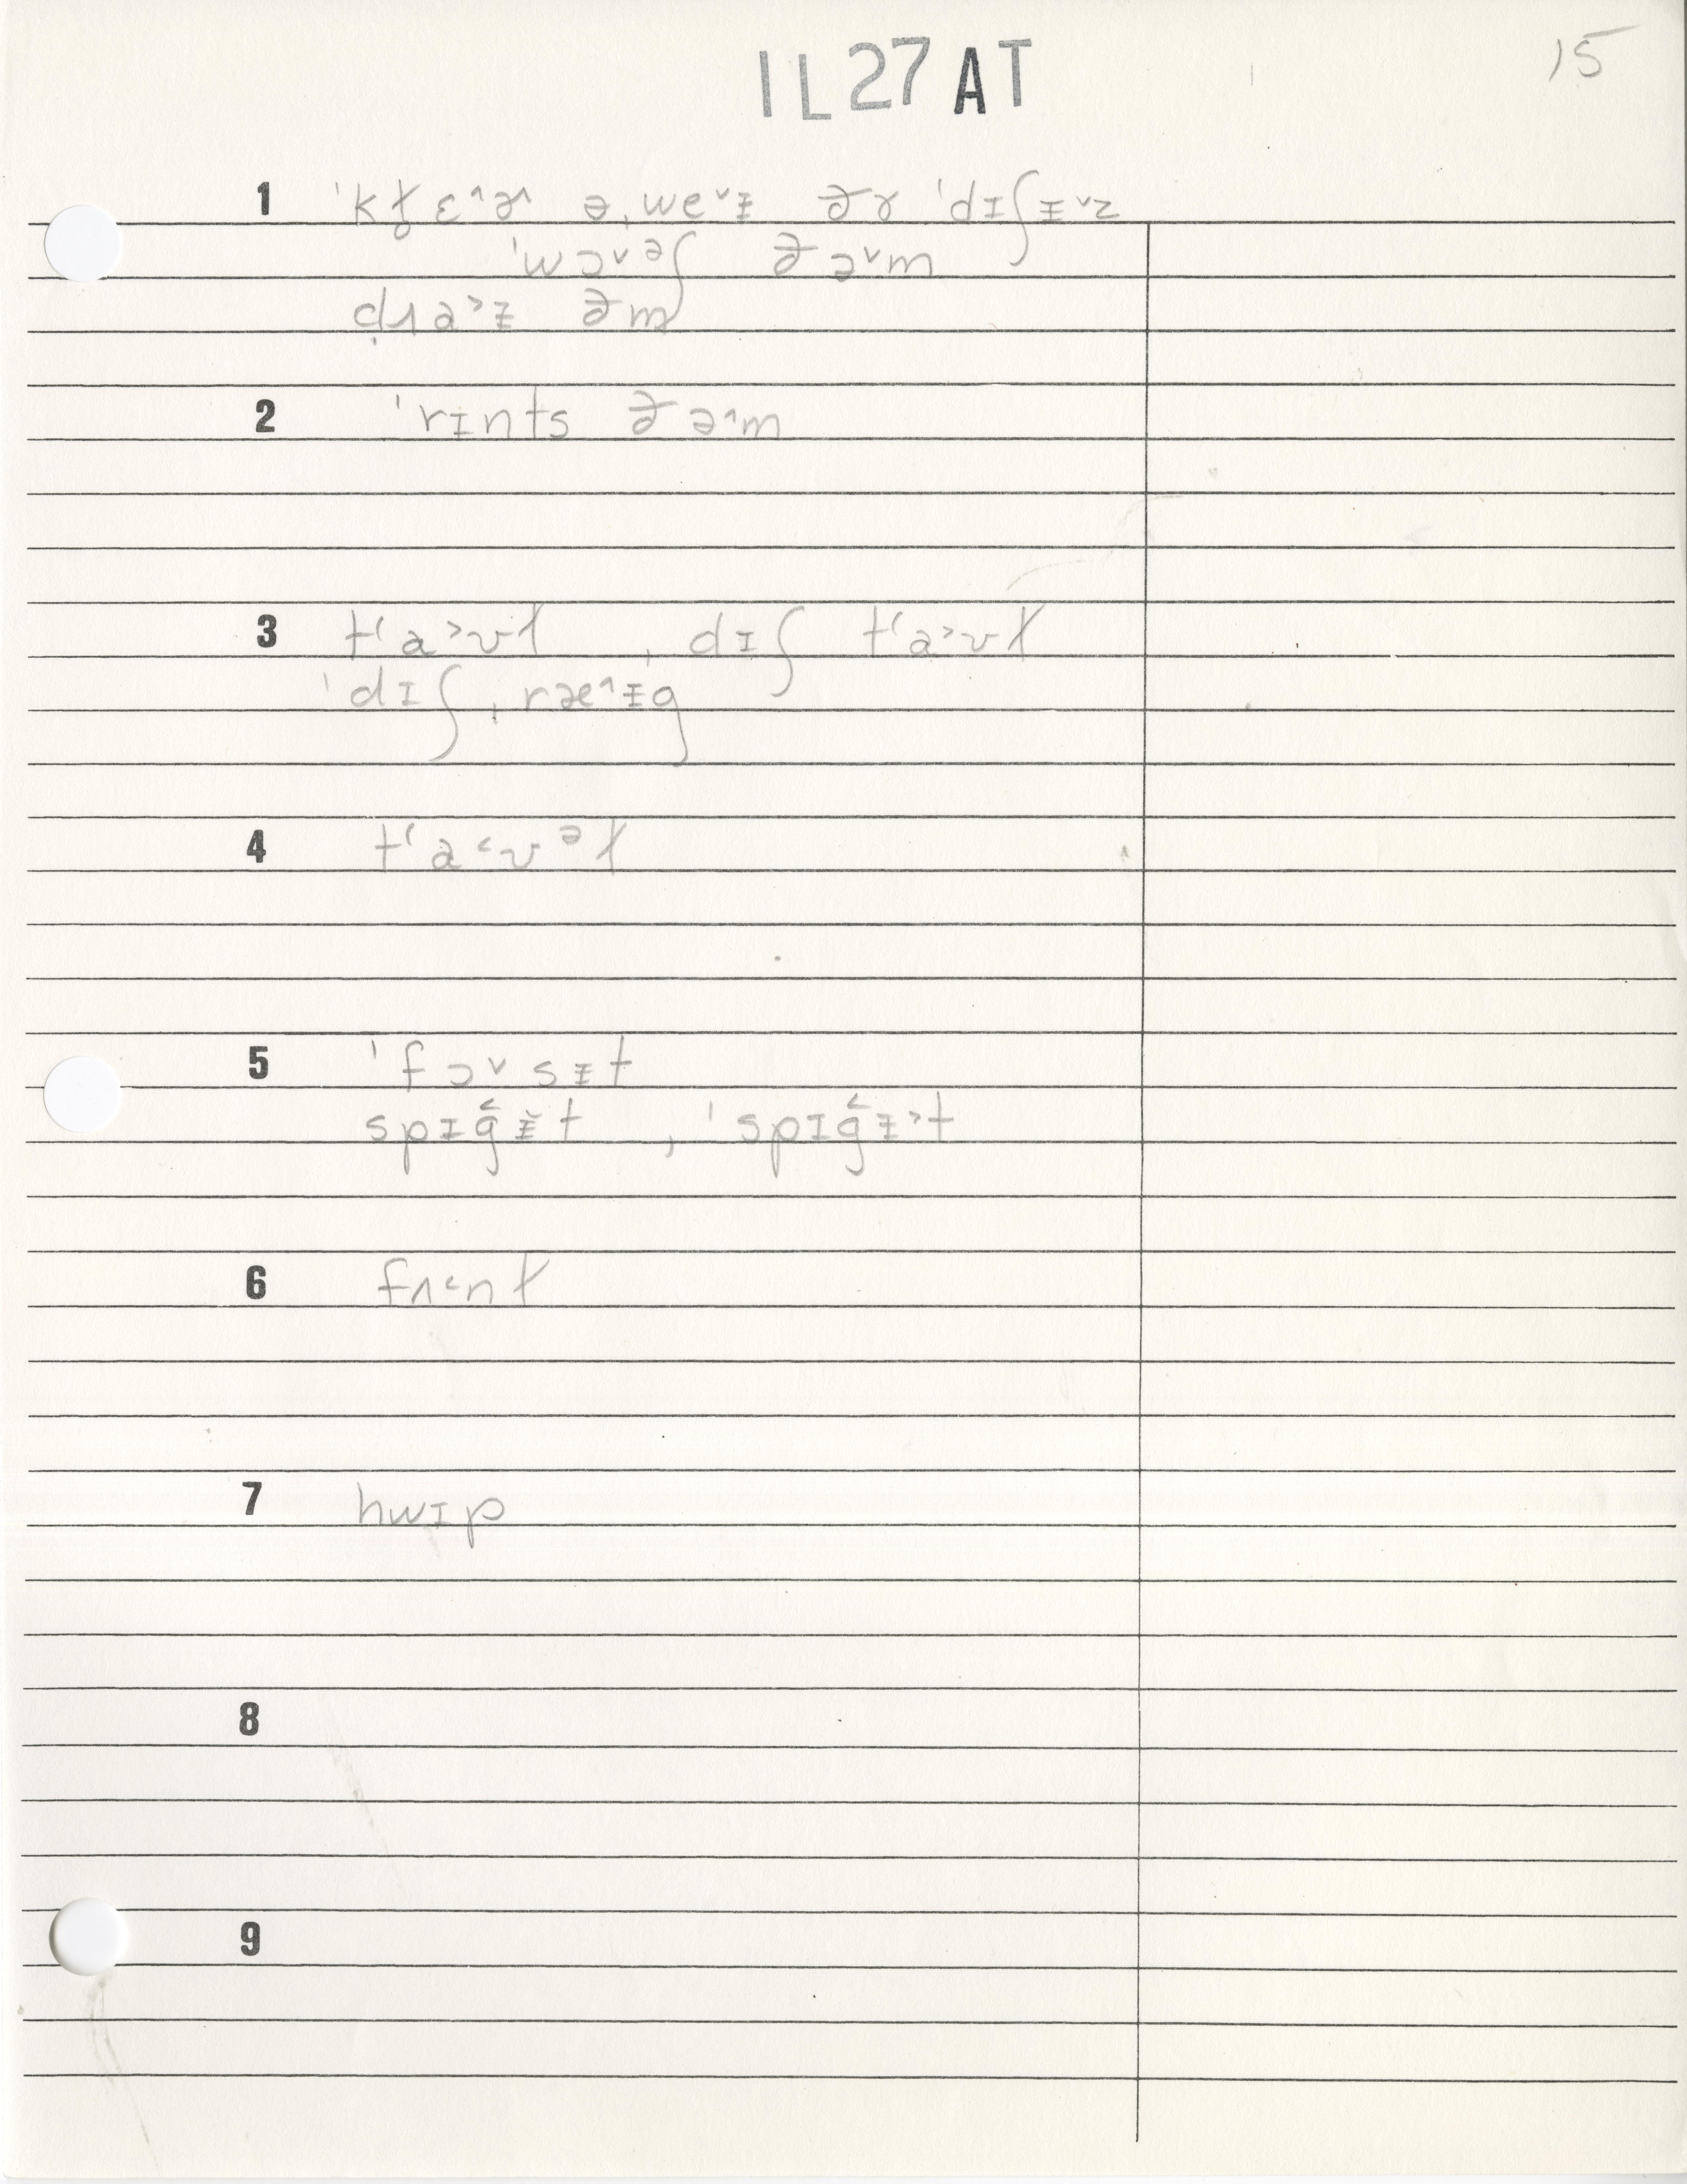 1L27AT
15
1 ˈkɫ̥ɛ˄ɚ˄ ə ˌwe˅ᵻ ðɚ ˈdɪʃᵻ˅z
ˈwɔ˅ᵊʃ ðə˅m
dɹa˃ᵻ ðm
2 ˈrɪnts ðə˄m
3 tʻa˃ʊɫ , dɪʃ tʻa˃ʊɫ
ˈdɪʃˌræ˄ᵻg
4 tʻa˂ʊᵊɫ
5 ˈfɔ˅sᵻt
spɪg̑˂ᵻ̆t , ˈspɪg̑˂ᵻ˃t
6 fʌ˂nɫ
7 hwɪp
8
9